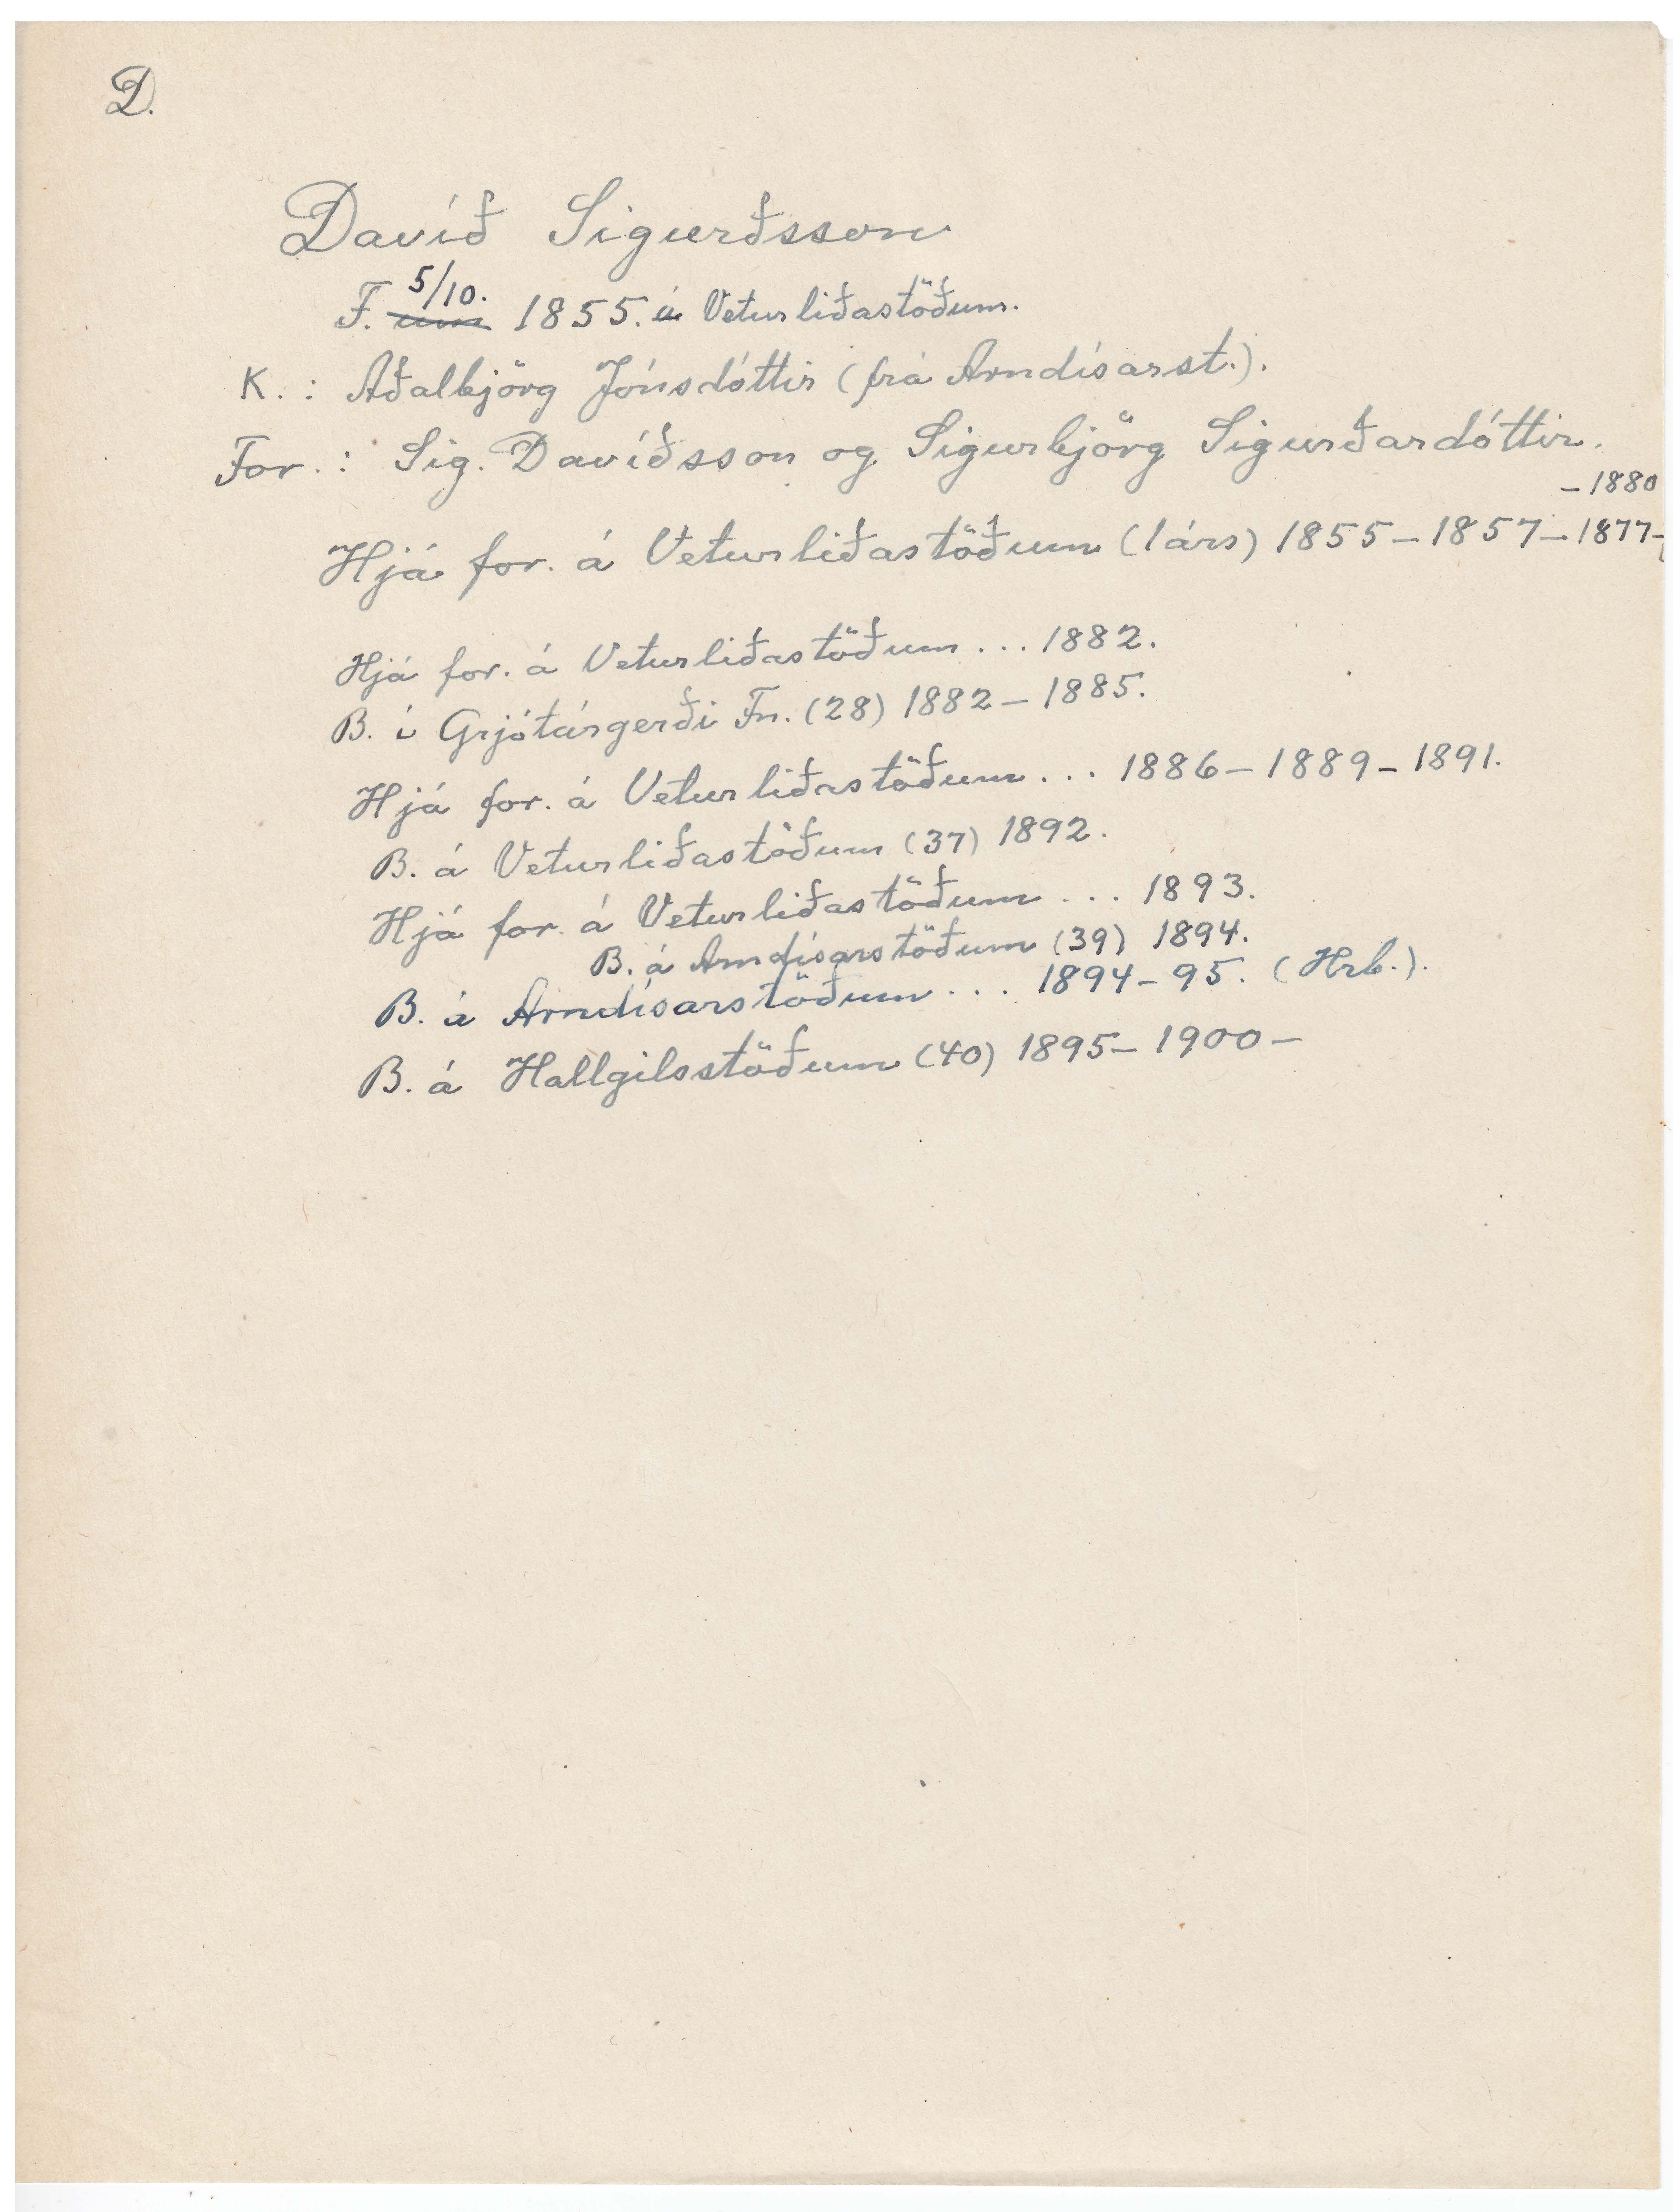 D.
Davíð Sigurðsson
F. um 5/10. 1855. á Veturliðastöðum.
K. : Aðalbjörg Jónsdóttir (frá Arndísarst.).
For. : Sig. Davíðsson og Sigurbjörg Sigurðardóttir.
-1880
Hjá for. á Veturliðastöðum (1 árs) 1855-1857-1877-
Hjá for. á Veturliðastöðum ... 1882.
B. í Grjótárgerði Fn. (28) 1882-1885.
Hjá for. á Veturliðastöðum ... 1886-1889-1891.
B. á Veturliðastöðum (37) 1892.
Hjá for. á Veturliðastöðum ... 1893.
B. á Arndísarstöðum (39) 1894.
B. á Arndísarstöðum ... 1894-95. (Hrb.).
B. á Hallgilsstöðum (40) 1895-1900-